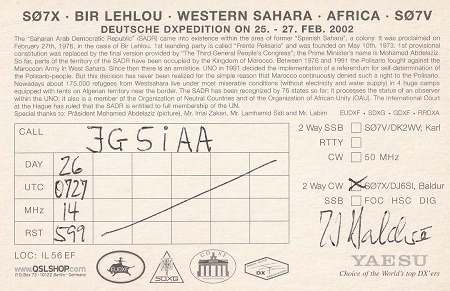 SØ7X · BIR LEHLOU · WESTERN SAHARA · AFRICA · SØ7V
DEUTSCHE DXPEDITION ON 25. - 27. FEB. 2002
The "Saharan Arab Democratic Republic" (SADR) came into existence within the area of former "Spanish Sahara", a colony. It was proclaimed on
February 27th, 1976, in the oasis of Bir Lehlou. 1st leanding party is called "Frente Polisario" and was founded on May 10th, 1973. 1st provisional
constitution was replaced by the final version provided by "The Third General People's Congress"; the Prime Minister's name is Mohamed Abdelaziz.
So far, parts of the territory of the SADR have been occupied by the Kingdom of Marocco. Between 1976 and 1991 the Polisario fought against the
Maroccon Army in West Sahara. Since then there is an armistice. UNO in 1991 decided the implementation of a referendum for self-determination of
the Polisario-people. But this decision has never been realized for the simple reason that Marocco continously denied such a right to the Polisario.
Nowadays about 176.000 refugees from Westsahara live under most miserable conditions (without electricity and water supply) in 4 huge camps
equipped with tents on Algerian territory near the border. The SADR has been recognized by 76 states so far; it processes the status of an observer
within the UNO; it also is a member of the Organization of Neutral Countries and of the Organization of African Unity (OAU). The International Court
at the Hague has ruled that the SADR is entitled to full membership of the UN.
Special thanks to: Präsident Mohamed Abdelaziz (picture), Mr. Imal Zakari, Mr. Lamhamid Sidi and Mr. Labim EUDXF · SDXG · GDXF · RRDXA
CALL JG5IAA
DAY 26
UTC 0727
MHz 14
RST 599
2 Way SSB SØ7V/DK2WV, Karl
RTTY
CW 50 MHz
2 Way CW SØ7X/DJ6SI, Baldur
SSB FOC HSC DIG
LOC: IL 56 EF
www.QSLSHOP.com
P.O.Box 73 - 10122 Berlin - Germany
EUDXF
SDXG
GDXF
DX
YAESU
Choice of the World's top DX'ers